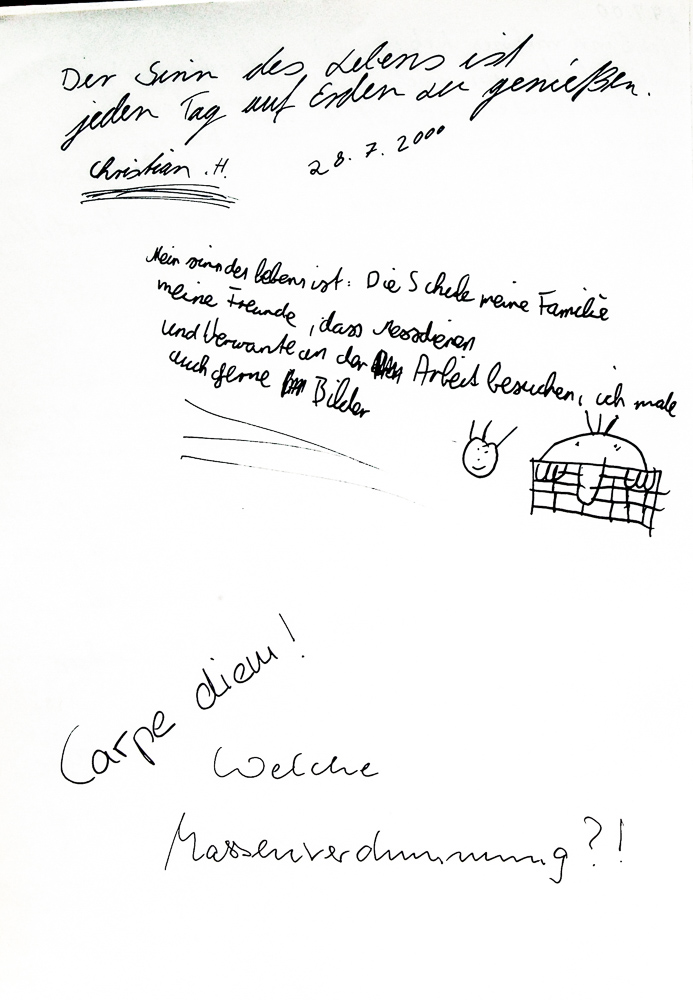 Der Sinn des Lebens ist
jeden Tag auf Erden zu genießen.
Christian .H. 28.7.2000
Mein sinn des lebens ist: Die Schule meine Familie
meine Freunde, dass
und Verwante an der Arbeit besuchen, ich male
auch gerne Bilder
Carpe diem!
Welche
Massenverdummung?!